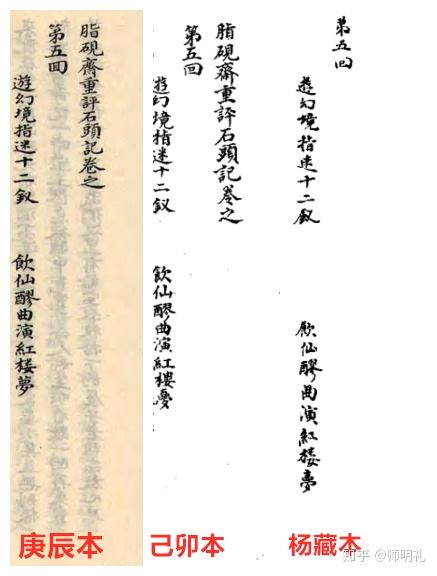 第五回
遊幻境指迷十二釵 飲仙醪曲演紅楼夢
脂硯齋重評石頭記卷之
第五回
遊幻境指迷十二釵 飲仙醪曲演紅樓夢
脂硯齋重評石頭記卷之
第五回
遊幻境指迷十二釵 飲仙醪曲演紅楼夢
庚辰本 己卯本 杨藏本
知乎 @师明礼